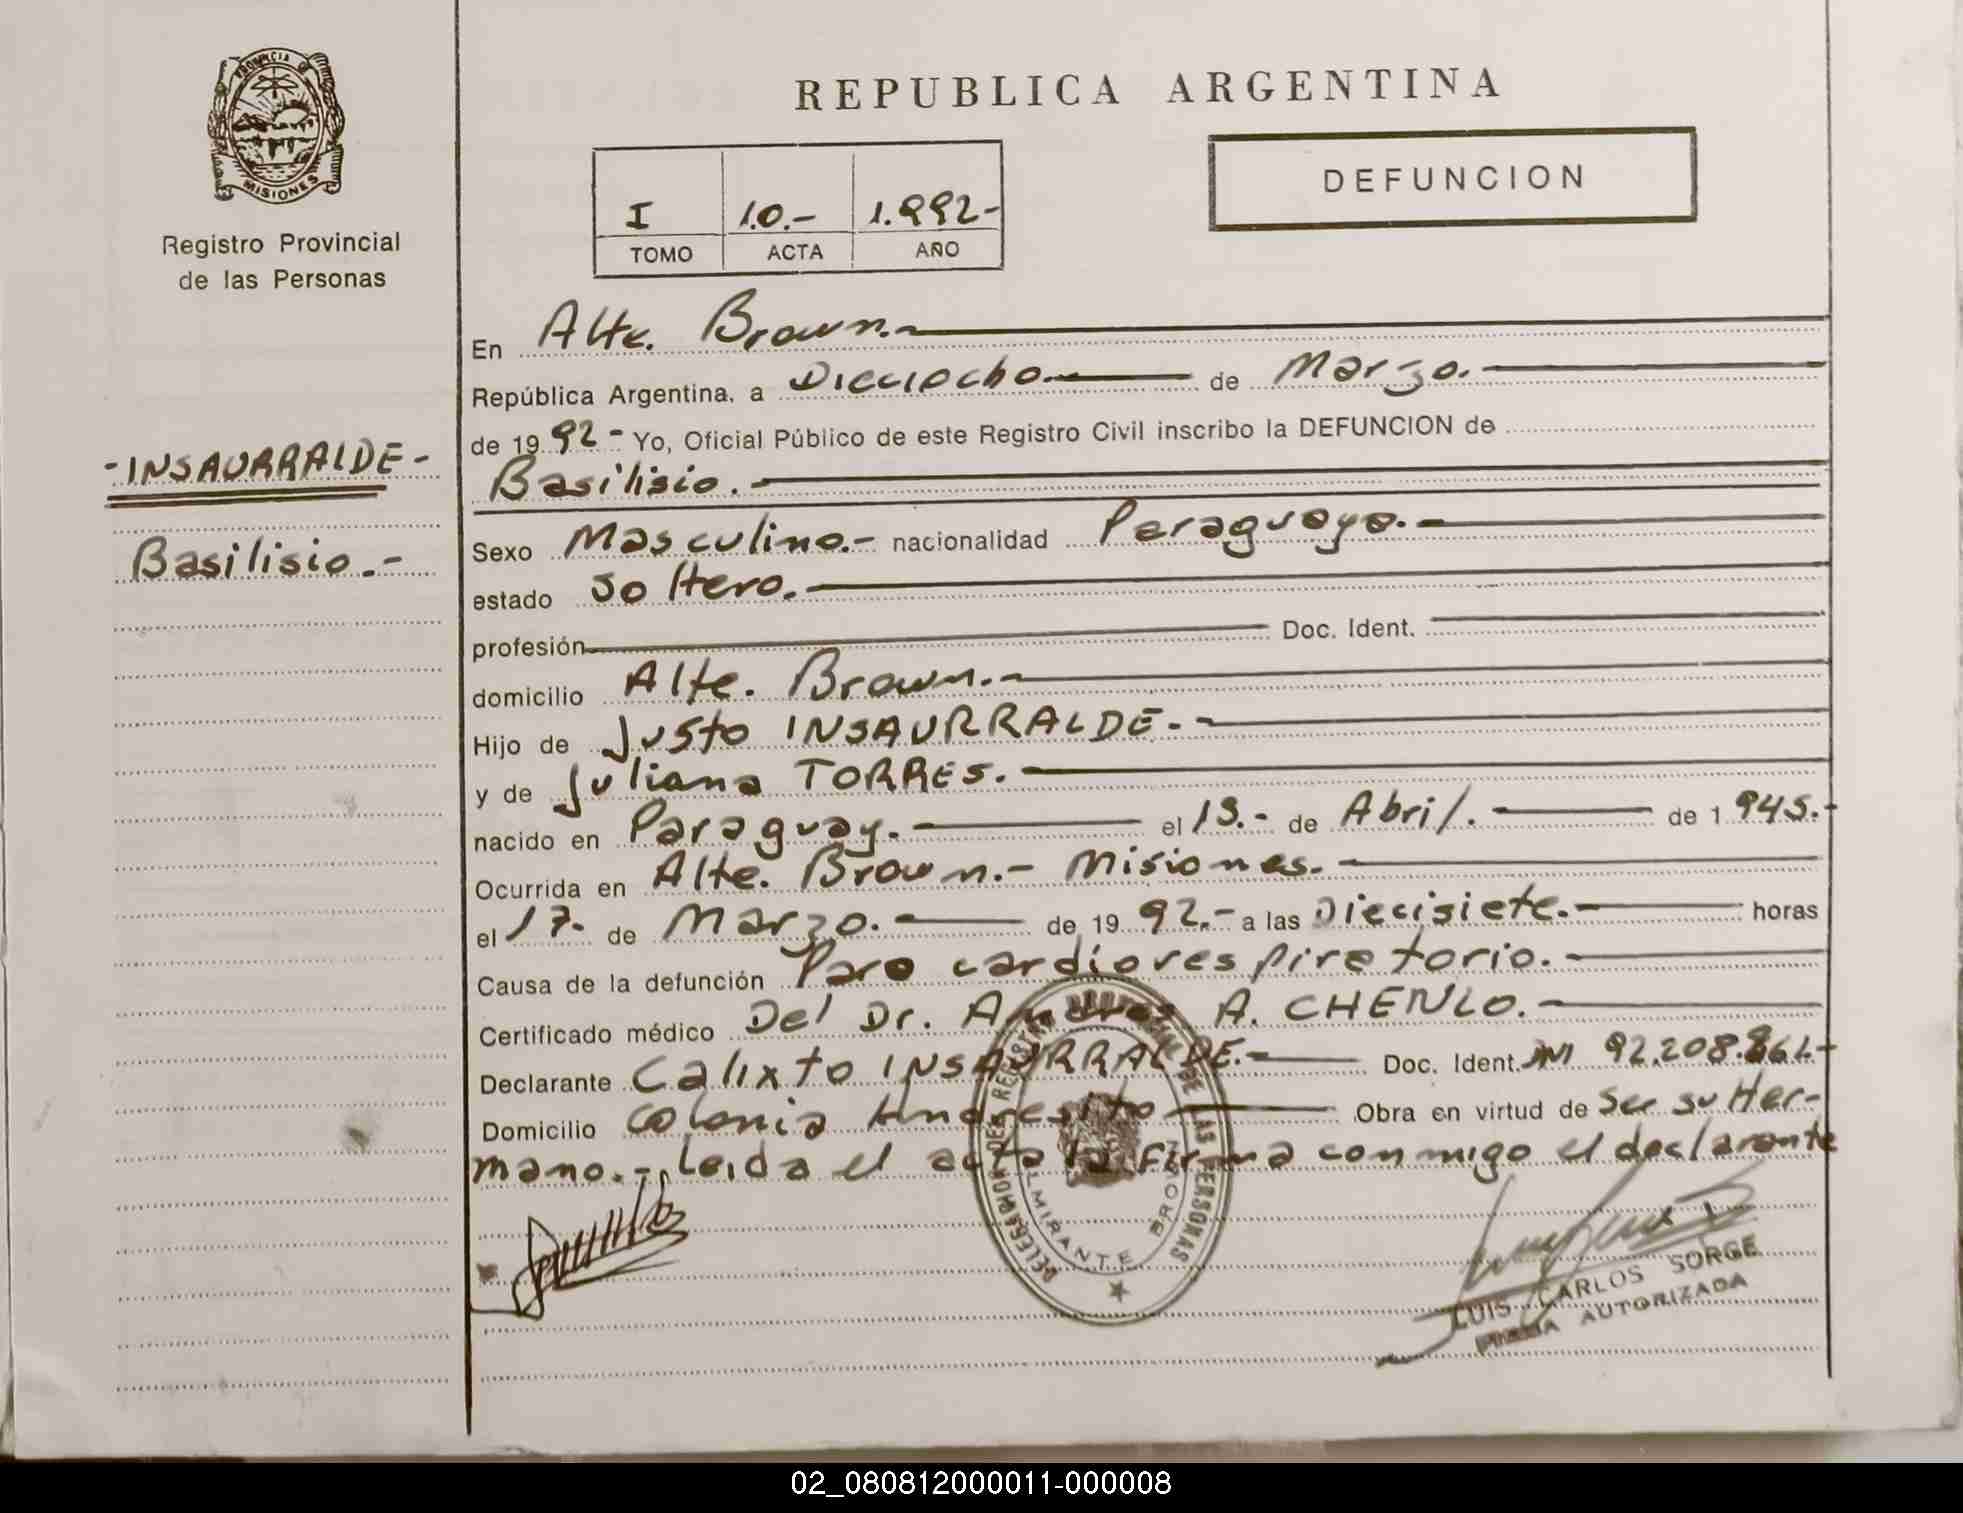 PROVINCIA DE
MISIONES
Registro Provincial
de las Personas
REPUBLICA ARGENTINA
I 10.- 1.992-
TOMO ACTA AÑO
DEFUNCION
-INSAURRALDE-
Basilisio.-
En Alte. Brown.-
República Argentina, a Dieciocho. de Marzo.-
de 1992- Yo, Oficial Público de este Registro Civil inscribo la DEFUNCION de
Basilisio.-
Sexo Masculino.- nacionalidad Paraguaya.-
estado Soltero.-
profesión Doc. Ident.
domicilio Alte. Brown.-
Hijo de Justo INSAURRALDE.-
y de Juliana TORRES.-
nacido en Paraguay.- el 15.- de Abril.- de 1945.-
Ocurrida en Alte. Brown.- Misiones.-
el 17- de Marzo.- de 1992.- a las Diecisiete.- horas
Causa de la defunción Paro cardiorespiratorio.-
Certificado médico Del Dr. Andres A. CHENLO.-
Declarante Calixto INSAURRALDE.- Doc. Ident. 92.208.
Domicilio Colonia Andresito Obra en virtud de Ser su Her-
mano.- Leida el acta la Firma conmigo el declarante
DELEGACION DEL REGISTRO PROVINCIAL DE LAS PERSONAS
ALMIRANTE BROWN
LUIS CARLOS SORGE
FIRMA AUTORIZADA
02_080812000011-000008